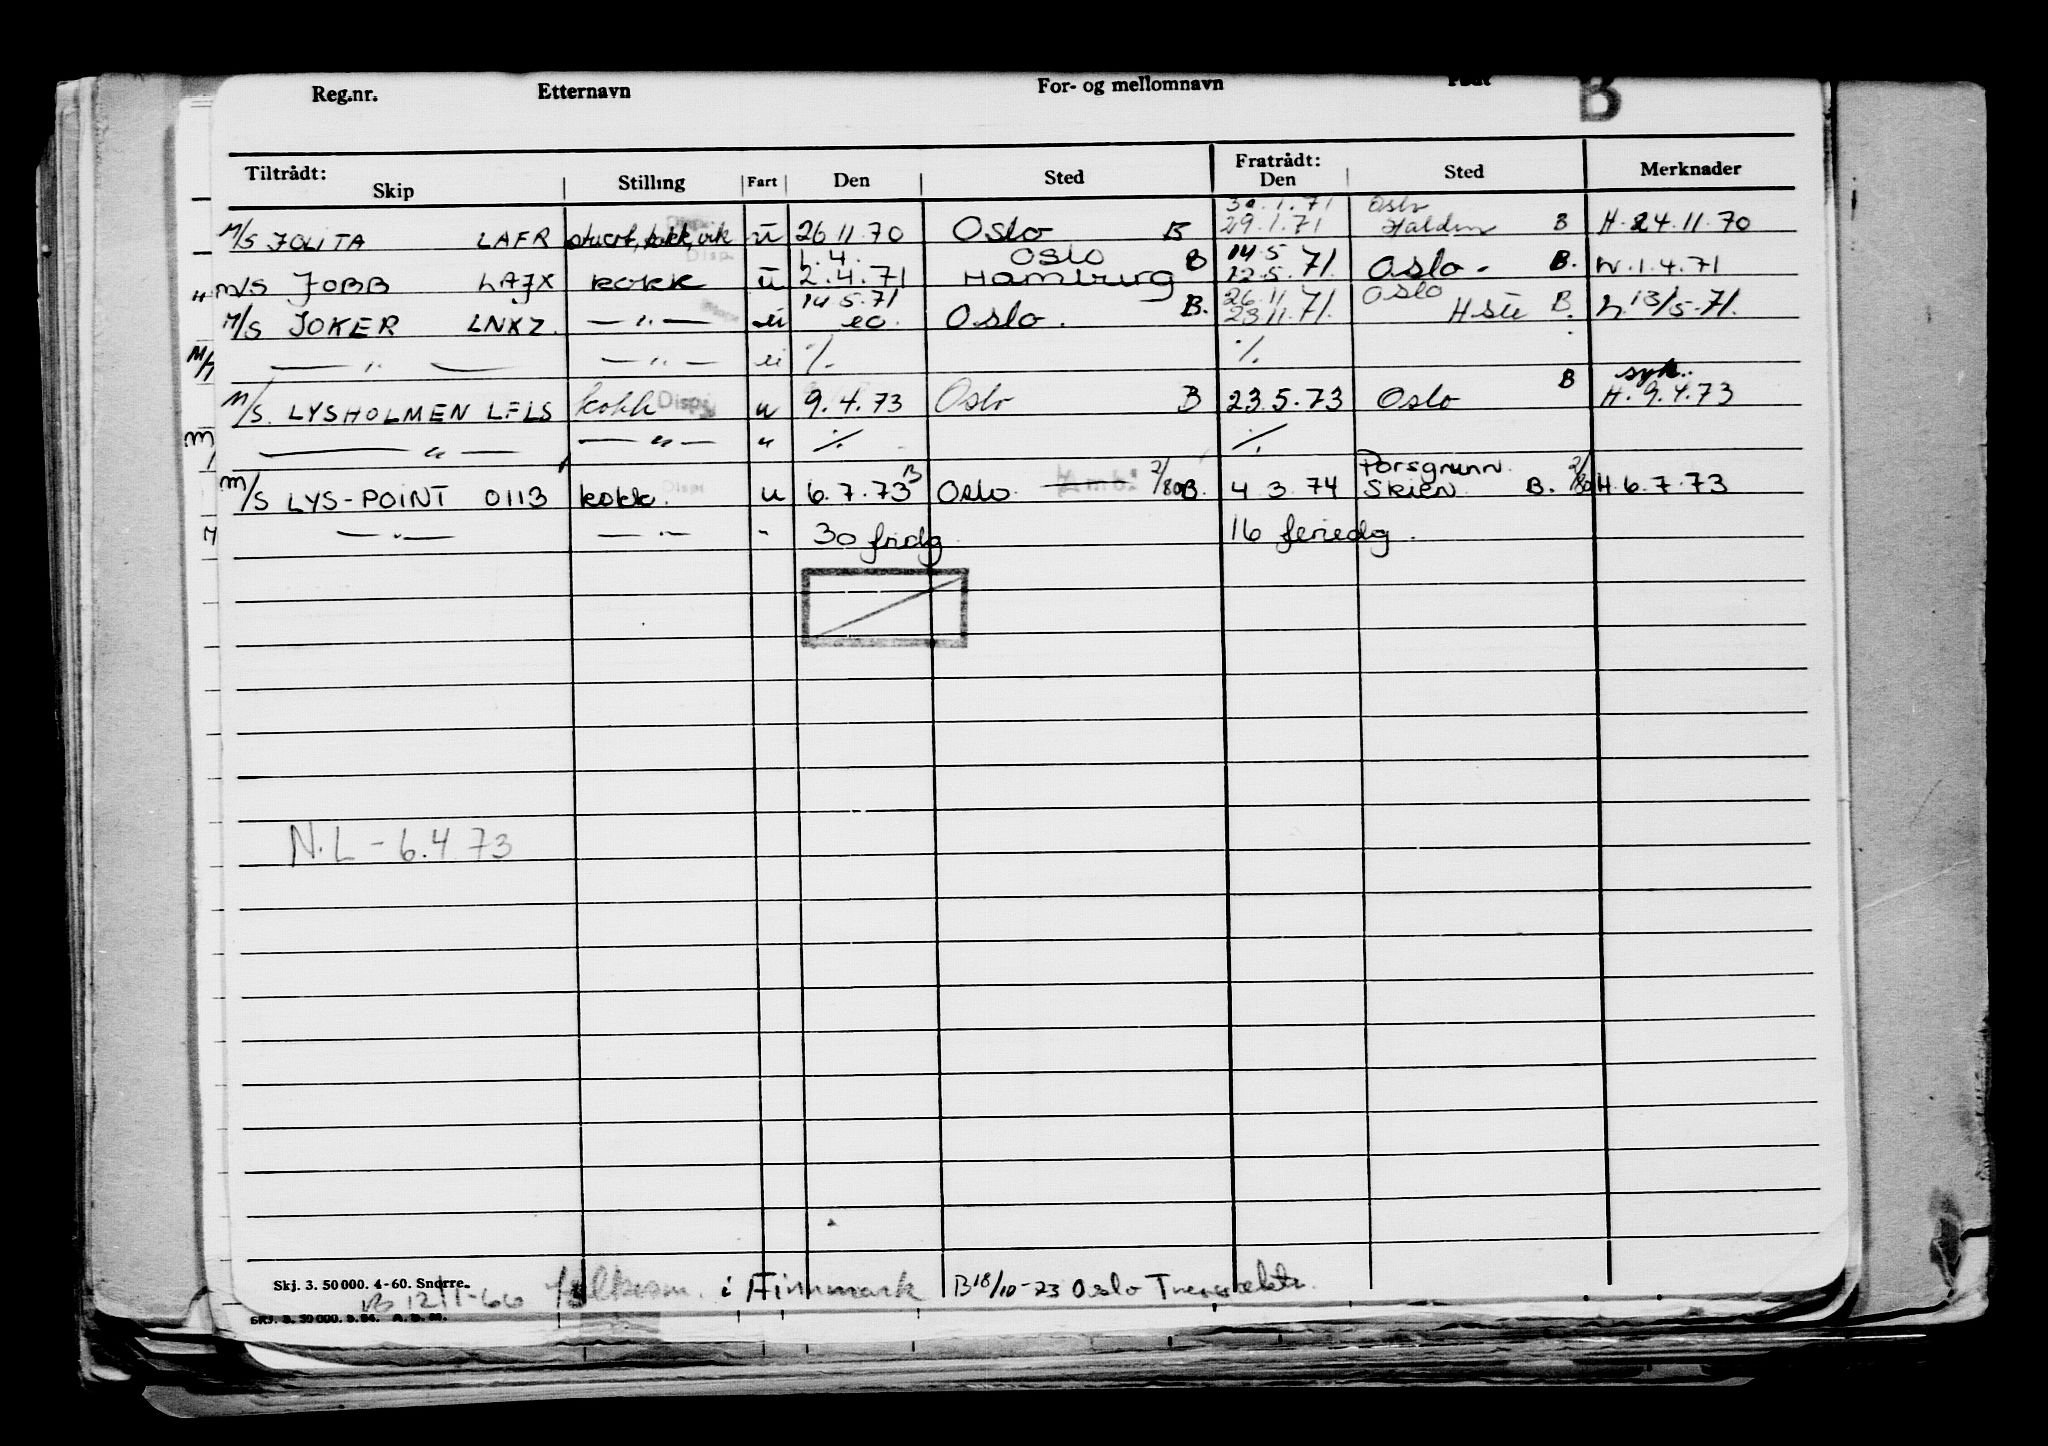 Reg.nr. Etternavn For- og mellomnavn Født B
Tiltrådt: Skip Stilling Fart Den Sted Fratrådt: Den Sted Merknader
30.1.71 Oslo
M/S JOLITA LAFR stuert, kokk, u 26 11 70 Oslo B 29.1.71 Halden B H. 24.11.70
1.4. Oslo B 14.5
M/S JOBB LAJX kokk u 2.4.71 Hamburg 22.5.71. Oslo. B. h.1.4.71
14 5.71 26.11 Oslo
M/S JOKER LNXZ. — " — Oslo. B. 23 11.71. B. h 13/5-71.
— " — — " — %. %.
syk.
M/S. LYSHOLMEN LFLS kokk Disp. u 9.4.73 Oslo B 23.5.73 Oslo B H. 9.4.73
— " — — " — " %. %.
Porsgrunn
M/S LYS-POINT 0113 kokk. Disp. u 6.7.73 B Oslo 2/80 B. 4.3.74 Skien B. 2/80 H. 6.7.73
— " — — " — " 30 fridg. 16 feriedg.
N.L - 6.4 73
Skj. 3. 50 000. 4-60. Snorre.
i Finnmark B 18/10-73 Oslo